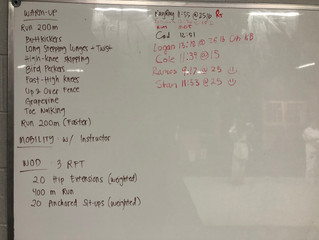 WARM-UP
Run 200m
Buttkickers
Long Stepping Lunges + Twist
High-knee skipping
Bird Peckers
Fast-High knees
Ups Over Fence
Grapevine
Toe Walking
Run 200m (Faster)
MOBILITY w/ Instructor
WOD 3 RFT
20 Hip Extensions (weighted)
400 m Run
20 Anchored Sit-ups (weighted)
11:55 @ 25 Rx
Logan
Cole 11:39 @ 15
@ 25
11:53 @ 25